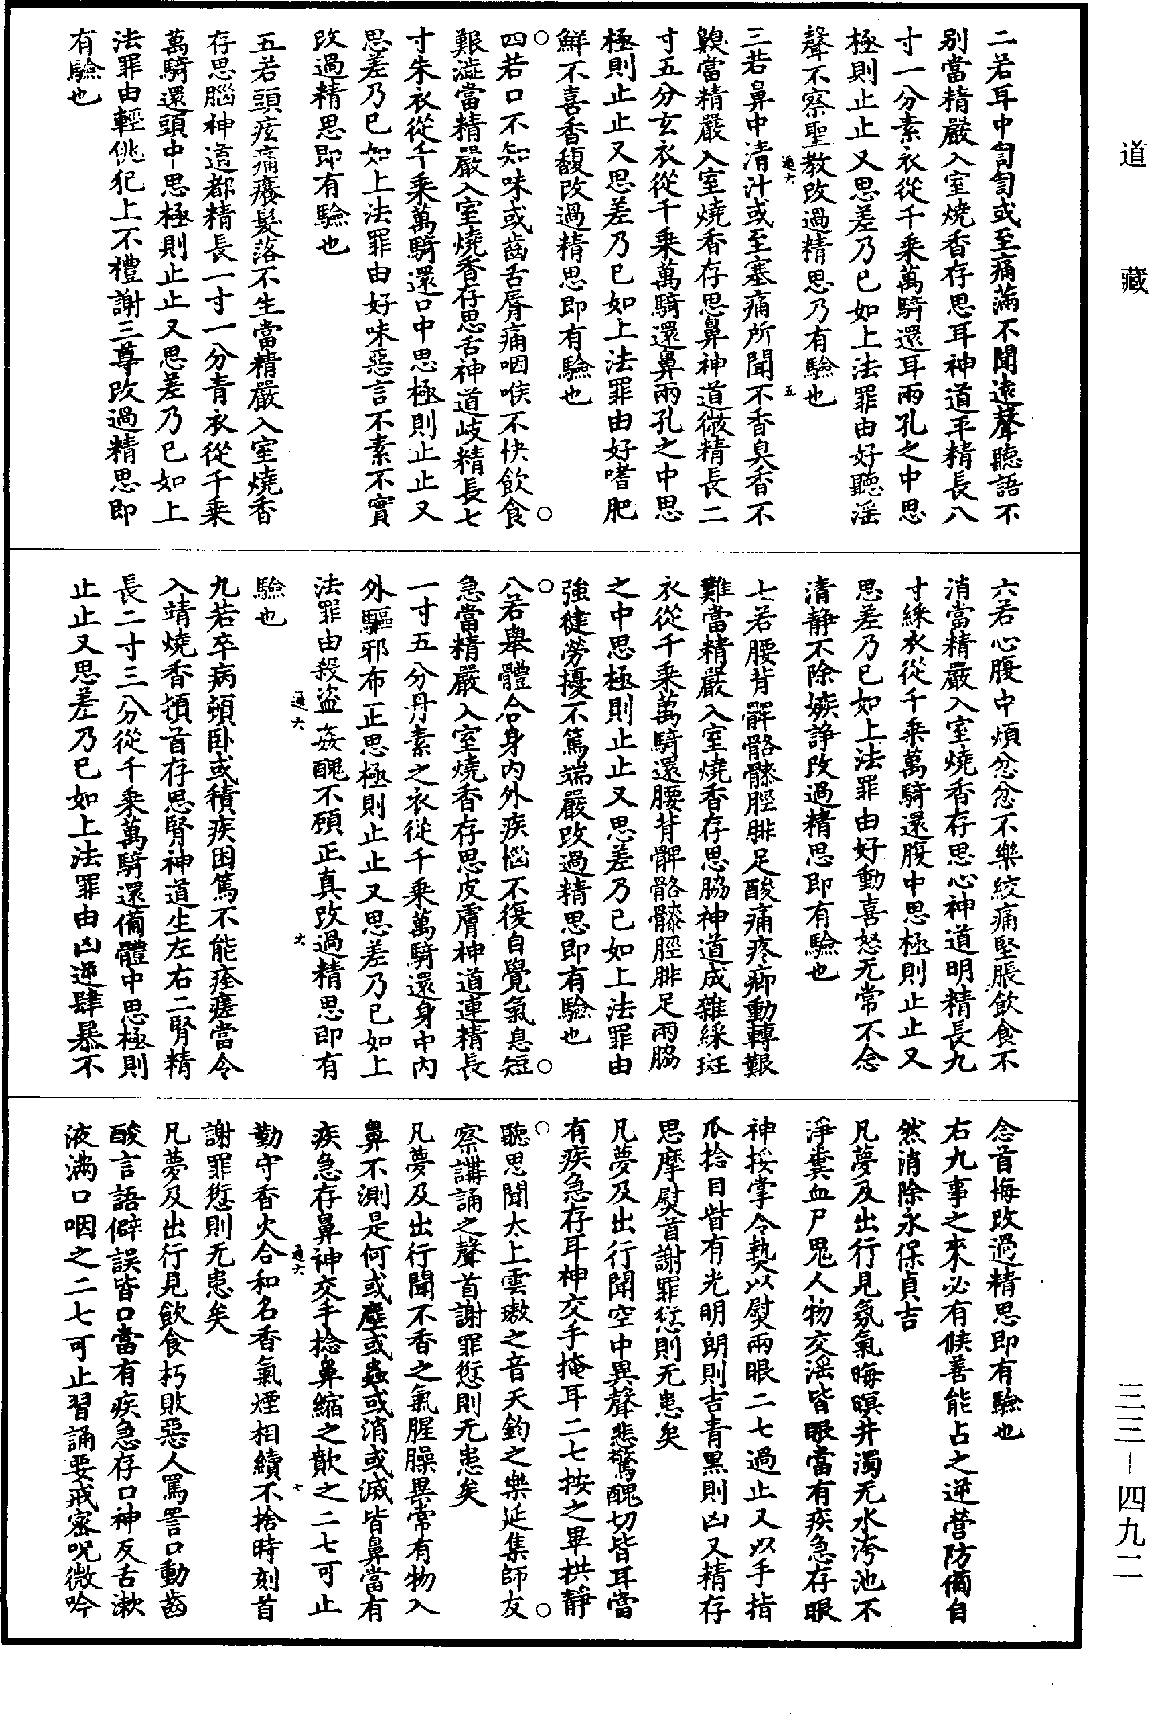 道藏
二若耳中訇訇或至痛滿不聞遠聲聽語不
别當精嚴入室燒香存思耳神道平精長八
寸一分素衣從千乘萬騎還耳兩孔之中思
極則止止又思差乃已如上法罪由好聽淫
聲不察聖教改過精思乃有驗也
三若鼻中清汁或至塞痛所聞不香臭香不
當精嚴入室燒香存思鼻神道微精長二
寸五分玄衣從千乘萬騎還鼻兩孔之中思
極則止止又思差乃已如上法罪由好嗜肥
鮮不喜香馥改過精思即有驗也
四若口不知味或齒舌脣痛咽喉不快飲食
艱澁當精嚴入室燒香存思舌神道岐精長七
寸朱衣從千乘萬騎還口中思極則止止又
思差乃已如上法罪由好味惡言不素不實
改過精思即有驗也
五若頭痃痛癢髮落不生當精嚴入室燒香
存思腦神道都精長一寸一分青衣從千乘
萬騎還頭中思極則止止又思差乃已如上
法罪由輕佻犯上不禮謝三尊改過精思即
有驗也
六若心腹中煩忿忿不樂絞痛堅脹飲食不
消當精嚴入室燒香存思心神道明精長九
寸綵衣從千乘萬騎還腹中思極則止止又
思差乃已如上法罪由好動喜怒无常不念
清静不除嫉諍改過精思即有驗也
七若腰背髀骼膝脛腓足酸痛疼痹動轉艱
難當精嚴入室燒香存思脇神道成雜綵斑
衣從千乘萬騎還腰背髀骼膝脛腓足兩脇
之中思極則止止又思差乃已如上法罪由
強健勞擾不篤端嚴改過精思即有驗也
八若舉體合身内外疾惱不復自覺氣息短
急當精嚴入室燒香存思皮膚神道連精長
一寸五分丹素之衣從千乘萬騎還身中内
外驅邪布正思極則止止又思差乃已如上
法罪由殺盗姦醜不顧正真改過精思即有
驗也
九若卒病頓卧或積疾困篤不能痊瘥當令
入靖燒香頓首存思腎神道生左右二腎精
長二寸三分從千乘萬騎還備體中思極則
止止又思差乃已如上法罪由凶逆肆暴不
念首悔改過精思即有驗也
右九事之來必有候善能占之逆營防備自
然消除永保貞吉
凡夢及出行見氛氣晦暝井濁无水洿池不
淨糞血尸鬼人物交淫皆眼當有疾急存眼
神挼掌令熱以熨兩眼二七過止又以手指
爪捻目眥有光明朗則吉青黑則凶又精存
思摩熨首謝罪愆則无患矣
凡夢及出行聞空中異聲悲驚醜切皆耳當
有疾急存耳神交手掩耳二七按之畢拱静
聽思聞太上雲璈之音天鈞之樂延集師友
察講誦之聲首謝罪愆則无患矣
凡夢及出行聞不香之氣腥臊異常有物入
鼻不測是何或塵或蟲或消或滅皆鼻當有
疾急存鼻神交手捻鼻縮之歕之二七可止
勤守香火合和名香氣煙相續不捨時刻首
謝罪愆則无患矣
凡夢及出行見飲食朽敗惡人罵詈口動齒
酸言語僻誤皆口當有疾急存口神反舌漱
液滿口咽之二七可止習誦要戒密呪微吟
三三－四九二